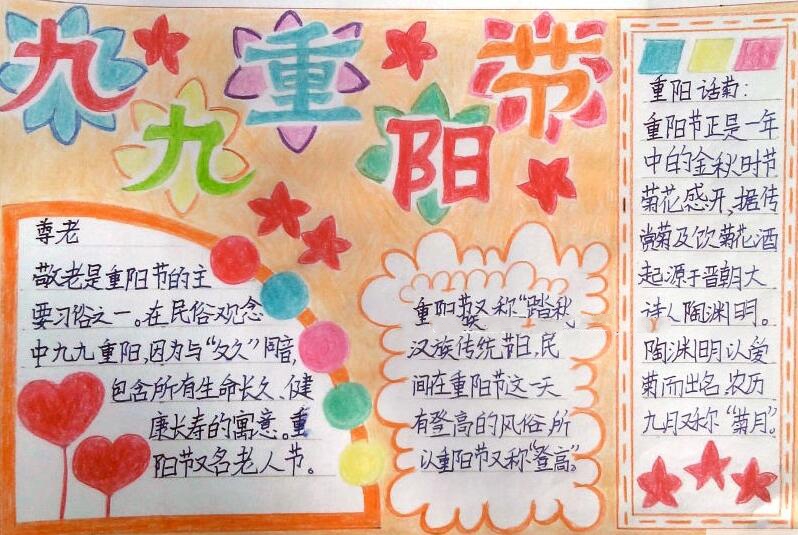 九九重阳节
尊老
敬老是重阳节的主
要习俗之一。在民俗观念
中九九重阳,因为与“久久”同音,
包含所有生命长久、健
康长寿的寓意。重
阳节又名老人节。
重阳节又称“踏秋
汉族传统节日,民
间在重阳节这一天
有登高的风俗,所
以重阳节又称“登高”。
重阳话菊:
重阳节正是一年
中的金秋时节
菊花盛开,据传
赏菊及饮菊花酒
起源于晋朝大
诗人陶渊明。
陶渊明以爱
菊而出名,农历
九月又称“菊月”。